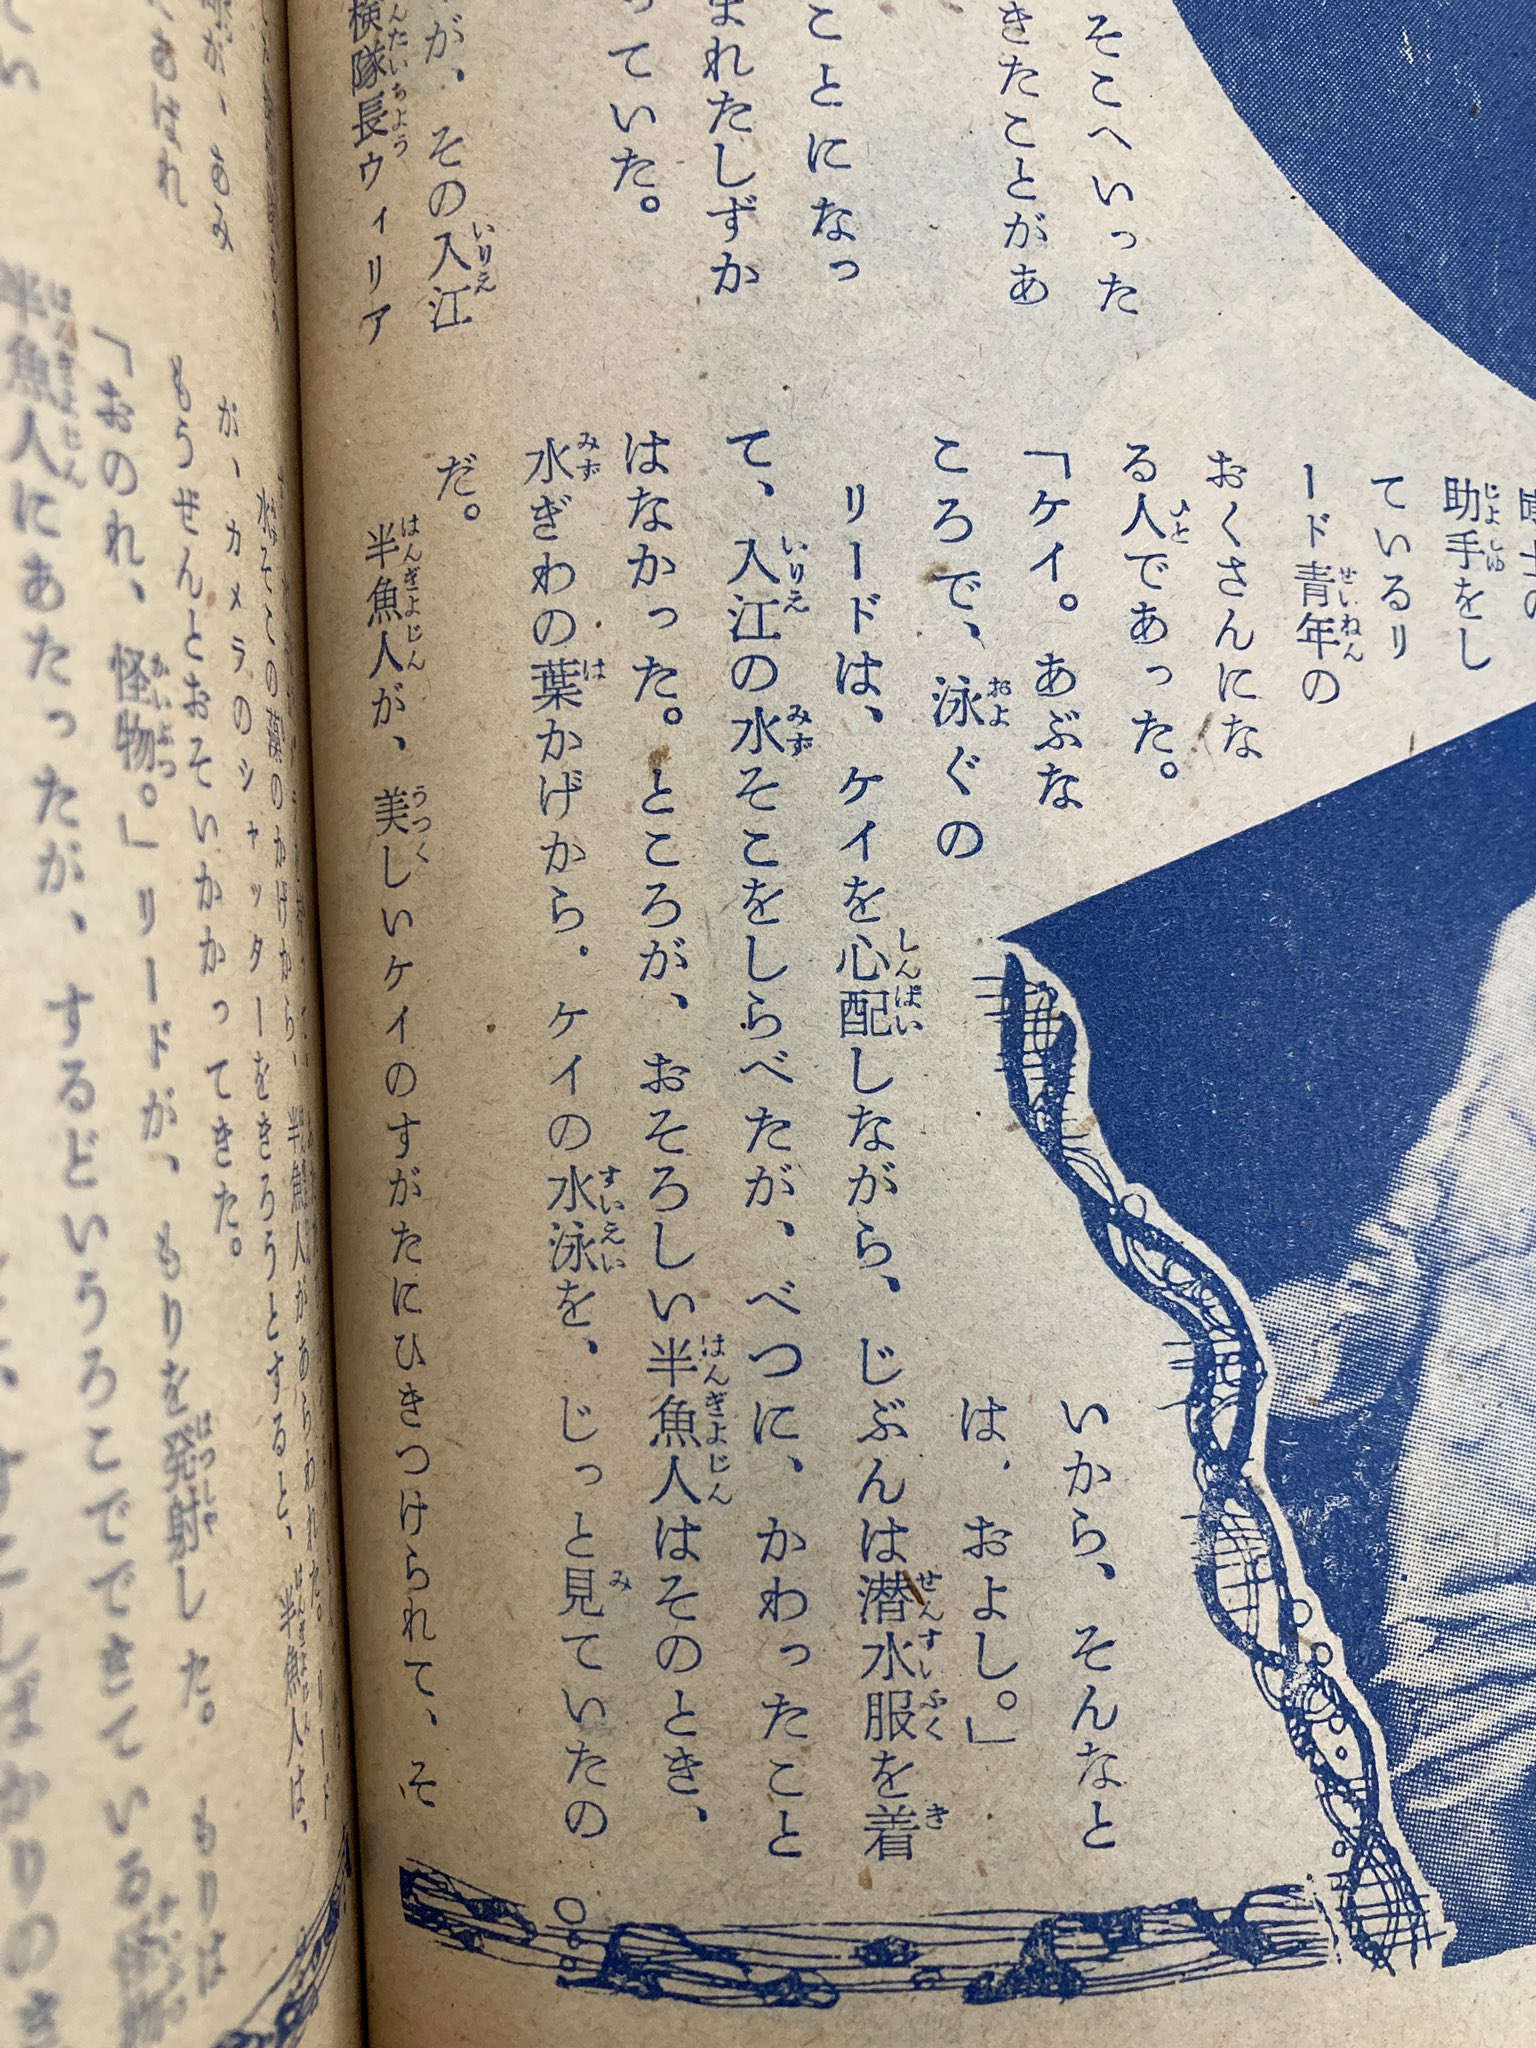 そこへいった
きたことがあ
ことになっ
まれたしずか
っていた。
が、その入江
検隊長ウィリア
助手をし
ているリ
ード青年の
おくさんにな
る人であった。
「ケイ。あぶないから、そんなと
ころで、泳ぐのは、およし。」
リードは、ケイを心配しながら、じぶんは潜水服を着
て、入江の水そこをしらべたが、べつに、かわったこと
はなかった。ところが、おそろしい半魚人はそのとき、
水ぎわの葉かげから、ケイの水泳を、じっと見ていたの
だ。
半魚人が、美しいケイのすがたにひきつけられて、そ
が、あみ
あばれ
水そこの藻のかげから、半魚人があらわれた。リード
が、カメラのシャッターをきろうとすると、半魚人は、
もうぜんとおそいかかってきた。
「おのれ、怪物。」リードが、もりを発射した。もりは
半魚人にあたったが、するどいうろこでできている怪物